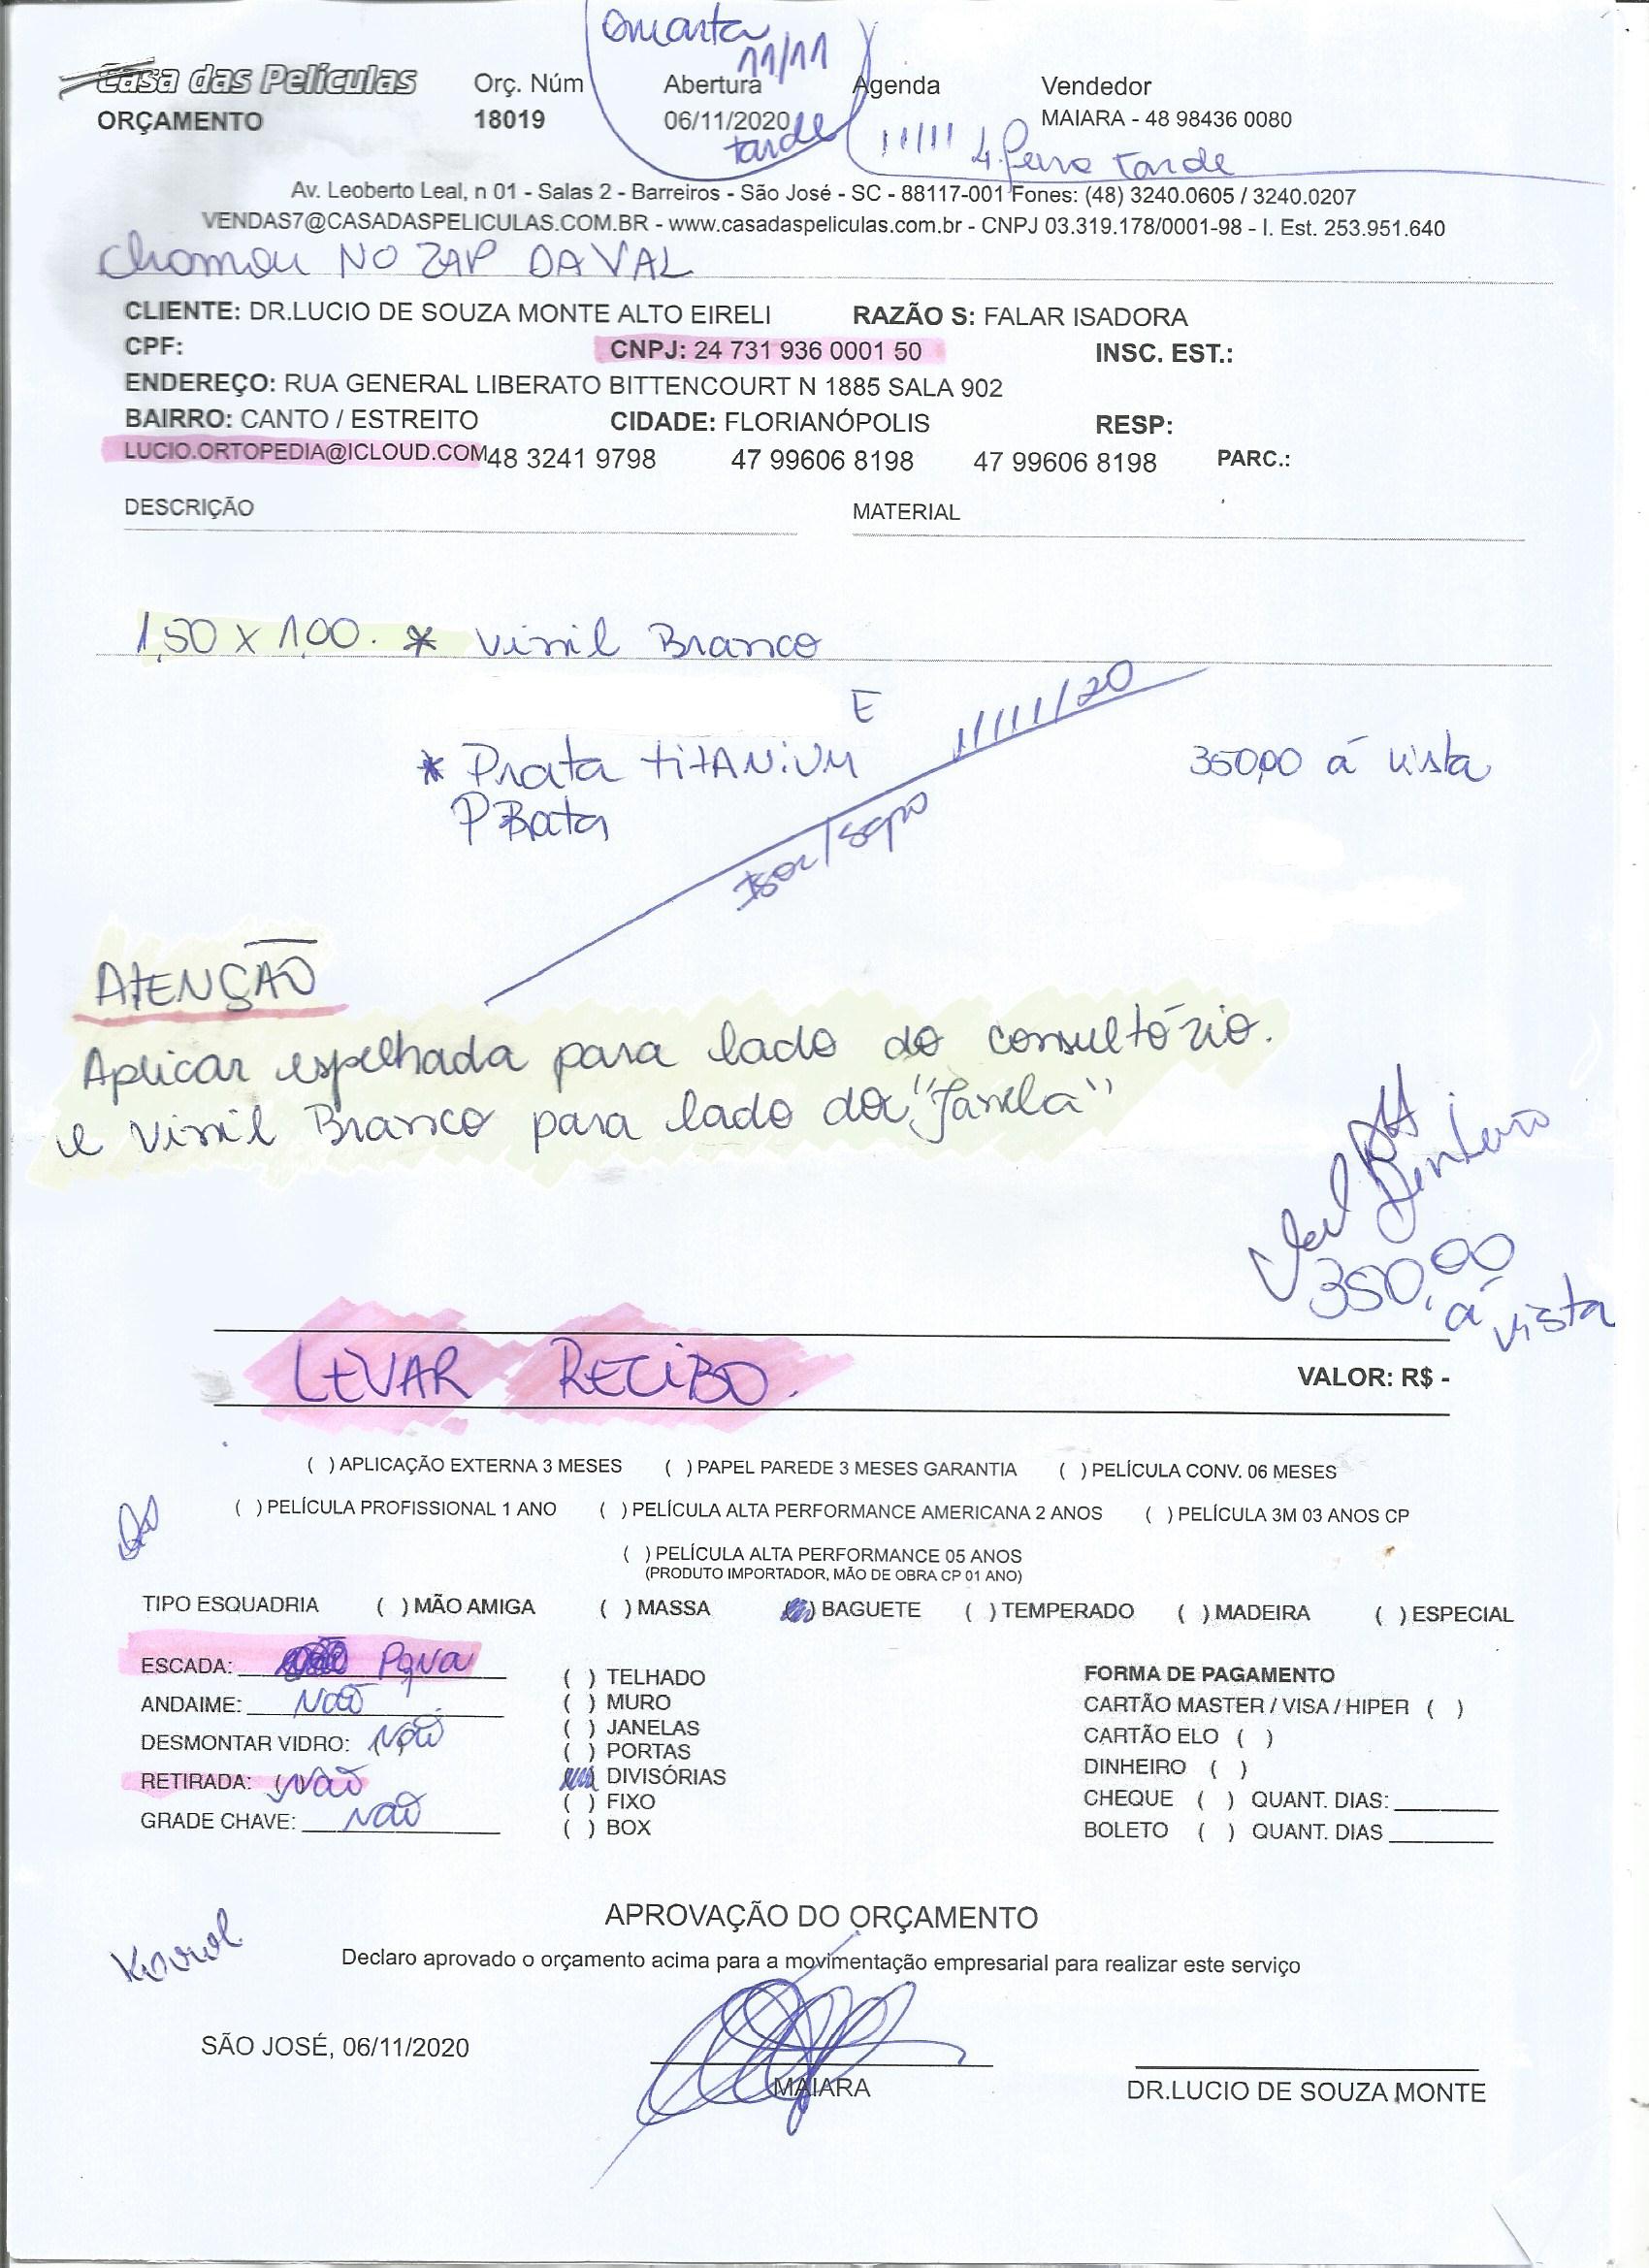 Quarta
11/11
Casa das Películas Orç. Núm Abertura Agenda Vendedor
ORÇAMENTO 18019 06/11/2020 MAIARA - 48 98436 0080
tarde 11/11 4. feira tarde
Av. Leoberto Leal, n 01 - Salas 2 - Barreiros - São José - SC - 88117-001 Fones: (48) 3240.0605 / 3240.0207
VENDAS7@CASADASPELICULAS.COM.BR - www.casadaspeliculas.com.br - CNPJ 03.319.178/0001-98 - I. Est. 253.951.640
Chamou NO ZAP DA VAL
CLIENTE: DR.LUCIO DE SOUZA MONTE ALTO EIRELI RAZÃO S: FALAR ISADORA
CPF: CNPJ: 24 731 936 0001 50 INSC. EST.:
ENDEREÇO: RUA GENERAL LIBERATO BITTENCOURT N 1885 SALA 902
BAIRRO: CANTO / ESTREITO CIDADE: FLORIANÓPOLIS RESP:
LUCIO.ORTOPEDIA@ICLOUD.COM 48 3241 9798 47 99606 8198 47 99606 8198 PARC.:
DESCRIÇÃO MATERIAL
1,50 x 1,00. * Vinil Branco
E
* Prata tITANIUM 11/11/20 350,00 á vista
PRata
ATENÇÃO
Aplicar espelhada para lado do consultório.
e Vinil Branco para lado da "Janela"
350,00
á vista
LEVAR RECIBO. VALOR: R$ -
( ) APLICAÇÃO EXTERNA 3 MESES ( ) PAPEL PAREDE 3 MESES GARANTIA ( ) PELÍCULA CONV. 06 MESES
( ) PELÍCULA PROFISSIONAL 1 ANO ( ) PELÍCULA ALTA PERFORMANCE AMERICANA 2 ANOS ( ) PELÍCULA 3M 03 ANOS CP
( ) PELÍCULA ALTA PERFORMANCE 05 ANOS
(PRODUTO IMPORTADOR, MÃO DE OBRA CP 01 ANO)
TIPO ESQUADRIA ( ) MÃO AMIGA ( ) MASSA ( ) BAGUETE ( ) TEMPERADO ( ) MADEIRA ( ) ESPECIAL
ESCADA:
ANDAIME: NÃO
DESMONTAR VIDRO: NÃO
RETIRADA: NÃO
GRADE CHAVE: NÃO
( ) TELHADO
( ) MURO
( ) JANELAS
( ) PORTAS
( ) DIVISÓRIAS
( ) FIXO
( ) BOX
FORMA DE PAGAMENTO
CARTÃO MASTER / VISA / HIPER ( )
CARTÃO ELO ( )
DINHEIRO ( )
CHEQUE ( ) QUANT. DIAS:
BOLETO ( ) QUANT. DIAS
APROVAÇÃO DO ORÇAMENTO
Declaro aprovado o orçamento acima para a movimentação empresarial para realizar este serviço
SÃO JOSÉ, 06/11/2020
MAIARA DR.LUCIO DE SOUZA MONTE